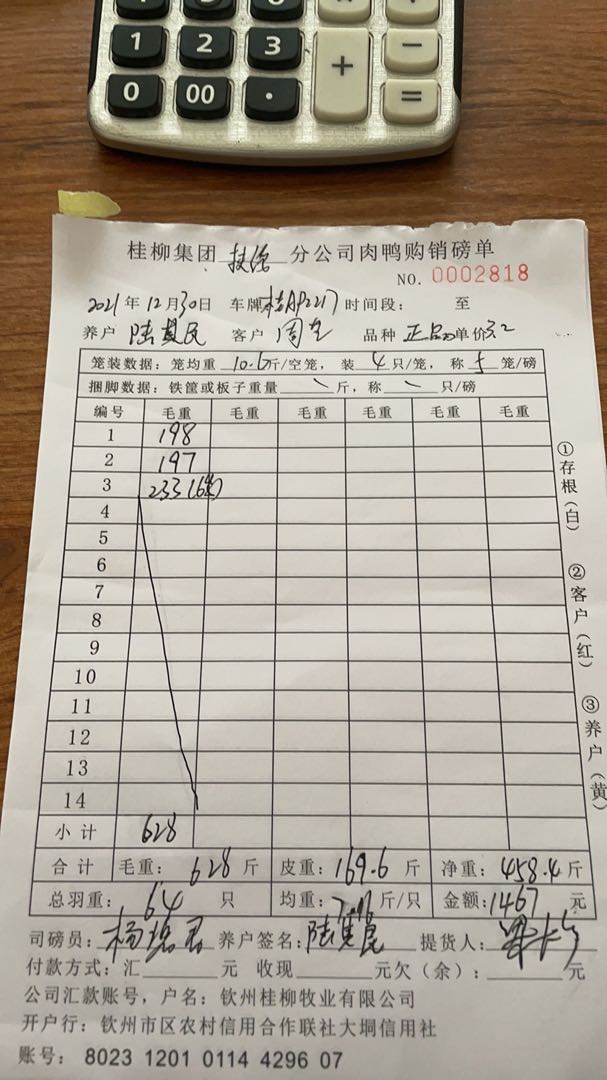 1 2 3 + −
0 00 · =
桂柳集团 扶绥 分公司肉鸭购销磅单
NO. 0002818
2021年12月30日 车牌桂AP2217 时间段: 至
养户 陆 民 客户 周 品种 正品 单价3.2
笼装数据: 笼均重 10.6斤/空笼, 装 4 只/笼, 称 5 笼/磅
捆脚数据: 铁筐或板子重量 \ 斤, 称 \ 只/磅
编号 毛重 毛重 毛重 毛重 毛重 毛重
1 198
2 197
3 233(6笼)
4
5
6
7
8
9
10
11
12
13
14
小计 628
合计 毛重: 628 斤 皮重: 169.6 斤 净重: 458.4 斤
总羽重: 64 只 均重: 斤/只 金额: 1467 元
司磅员: 杨 养户签名: 陆 提货人:
付款方式: 汇 元 收现 元 欠(余): 元
公司汇款账号, 户名: 钦州桂柳牧业有限公司
开户行: 钦州市区农村信用合作联社大垌信用社
账号: 8023 1201 0114 4296 07
①存根(白)
②客户(红)
③养户(黄)